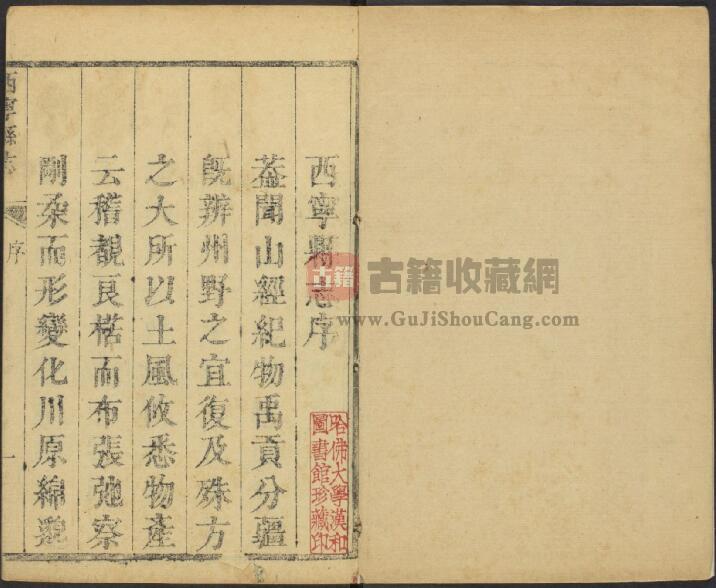 西寧縣志序
葢聞山經紀物禹貢分疆
旣辨州野之宜復及殊方
之大所以土風攸悉物產
云稽覩良楛而布張弛察
剛柔而形變化川原綿邈
西寧縣志
序
一
哈佛大學漢和
圖書館珍藏印
古籍
古籍收藏網
www.GuJiShouCang.com